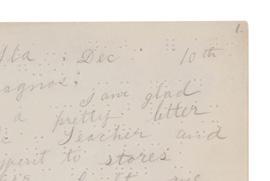 1.
Sta : Dec . 10th
agnos ;
I am glad
a pretty letter
Teacher and
went to stores